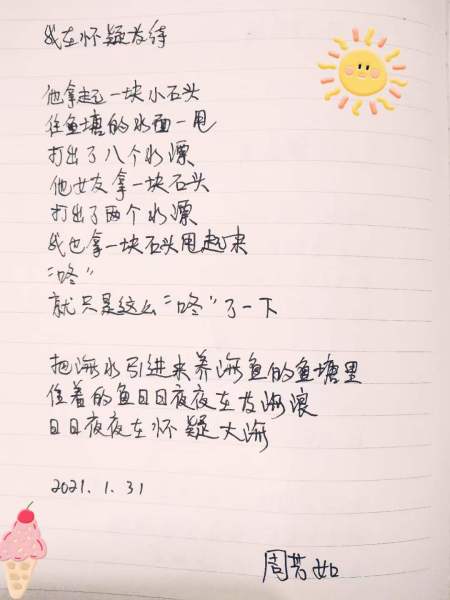 我在怀疑
他拿起一块小石头
往鱼塘的水面一甩
打出了八个水漂
他女友拿一块石头
打出了两个水漂
我也拿一块石头甩起来
“咚”
就只是这么“咚”了一下
把海水引进来养海鱼的鱼塘里
住着的鱼日日夜夜在海浪
日日夜夜在怀疑大海
2021.1.31
周如